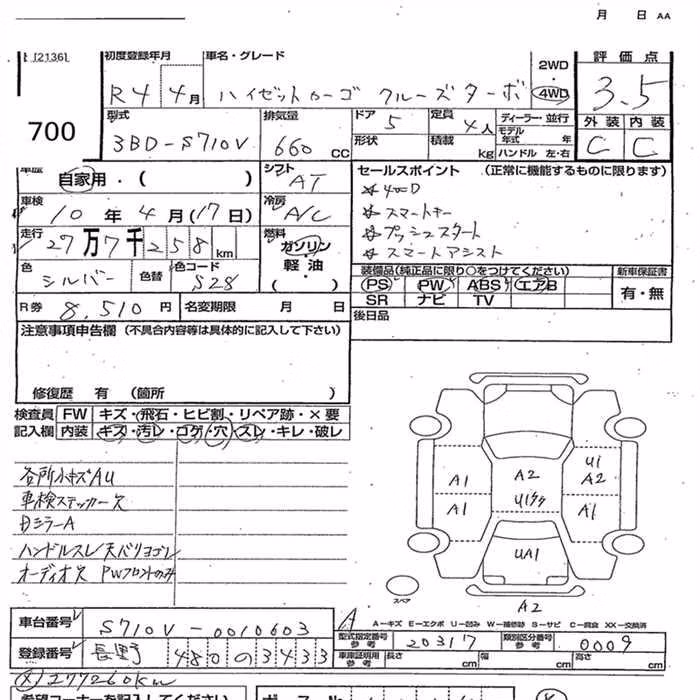 月 日 AA
[2136]
初度登録年月 車名・グレード 2WD 評価点
R4 4月 ハイゼットカーゴ クルーズターボ 4WD 3.5
700
型式 排気量 ドア 定員 ディーラー・並行 外装 内装
3BD-S710V 660 CC 5 4人 モデル年式 年 C C
形状 積載 kg ハンドル 左・右
車歴 シフト セールスポイント (正常に機能するものに限ります)
自家用・( ) AT ※4WD
車検 冷房
10年4月(17日) A/C ※スマートキー
走行 燃料 ※プッシュスタート
27万7千258km ガソリン ※スマートアシスト
色 色替 色コード 軽油 装備品(純正品に限り○をつけてください) 新車保証書
シルバー S28 ( ) PS PW ABS エアB 有・無
R券 8,510円 名変期限 月 日 SR ナビ TV
注意事項申告欄 (不具合内容等は具体的に記入して下さい) 後日品
修復歴 有 (箇所 )
検査員 FW キズ・飛石・ヒビ割・リペア跡・×要
記入欄 内装 キズ・汚レ・コゲ・穴・スレ・キレ・破レ
各所小キズAU
車検ステッカー欠
BミラーA
ハンドルスレ 天バリヨゴレ
オーディオ欠 PWフロントのみ
A1 A2 U1
A2
A1 U1 A1
UA1
スペア A2
A A-キズ E-エクボ U-凹み W-補修跡 S-サビ C-腐食 XX-交換済
車台番号 S710V-0010603
型式指定番号 参考 20317 類別区分番号 参考 0009
登録番号 長野 480 の 3433
車庫証明用 参考 長さ cm 幅 cm 高さ cm
(×)277260km
希望コーナーを記入して下さい